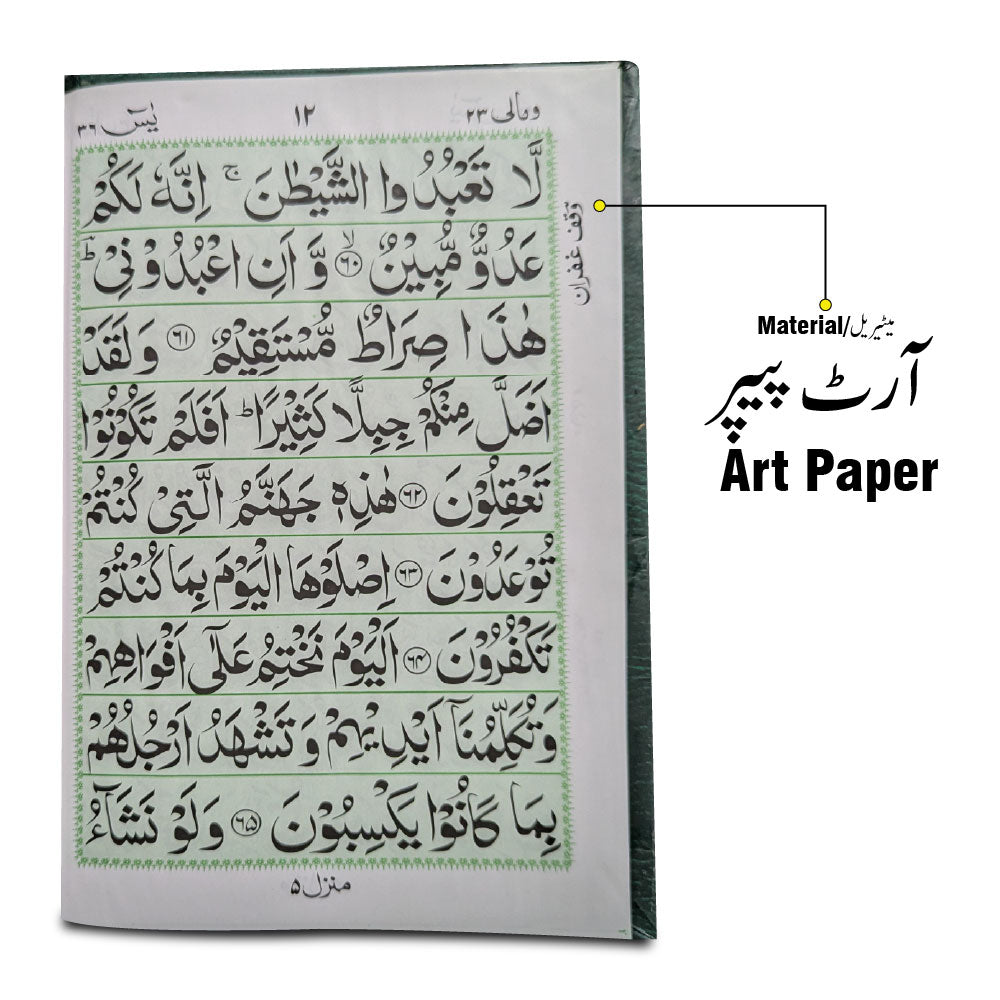 ومالی ۲۳
۱۲
یٰسٓ ۳۶
لَّا تَعْبُدُوا الشَّيْطٰنَ ۚ اِنَّهٗ لَكُمْ
عَدُوٌّ مُّبِيْنٌ ۙ﴿۶۰﴾ وَّ اَنِ اعْبُدُوْنِيْ ؕ
هٰذَا صِرَاطٌ مُّسْتَقِيْمٌ ﴿۶۱﴾ وَلَقَدْ
اَضَلَّ مِنْكُمْ جِبِلًّا كَثِيْرًا ؕ اَفَلَمْ تَكُوْنُوْا
تَعْقِلُوْنَ ﴿۶۲﴾ هٰذِهٖ جَهَنَّمُ الَّتِيْ كُنْتُمْ
تُوْعَدُوْنَ ﴿۶۳﴾ اِصْلَوْهَا الْيَوْمَ بِمَا كُنْتُمْ
تَكْفُرُوْنَ ﴿۶۴﴾ اَلْيَوْمَ نَخْتِمُ عَلٰٓى اَفْوَاهِهِمْ
وَتُكَلِّمُنَاۤ اَيْدِيْهِمْ وَتَشْهَدُ اَرْجُلُهُمْ
بِمَا كَانُوْا يَكْسِبُوْنَ ﴿۶۵﴾ وَلَوْ نَشَآءُ
وقف غفران
منزل ۵
Material/میٹیریل
آرٹ پیپر
Art Paper